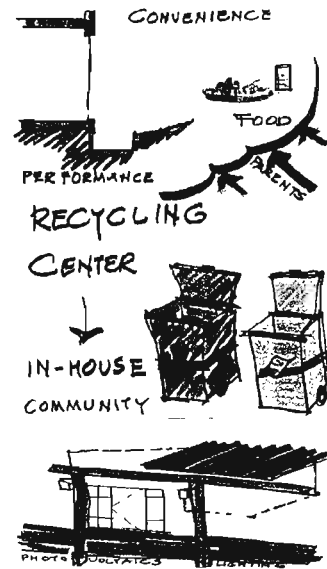 CONVENIENCE
FOOD
PARENTS
PERFORMANCE
RECYCLING
CENTER
IN-HOUSE
COMMUNITY
PHOTOVOLTAICS
LIGHTING